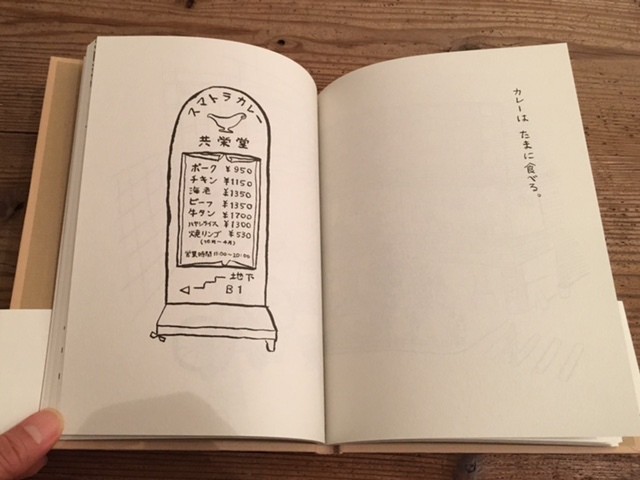 スマトラカレー
共栄堂
ポーク ¥950
チキン ¥1150
海老 ¥1350
ビーフ ¥1350
牛タン ¥1700
ハヤシライス ¥1300
焼リンゴ ¥530
(10月〜4月)
営業時間 11:00〜20:00
地下
B1
カレーは たまに食べる。